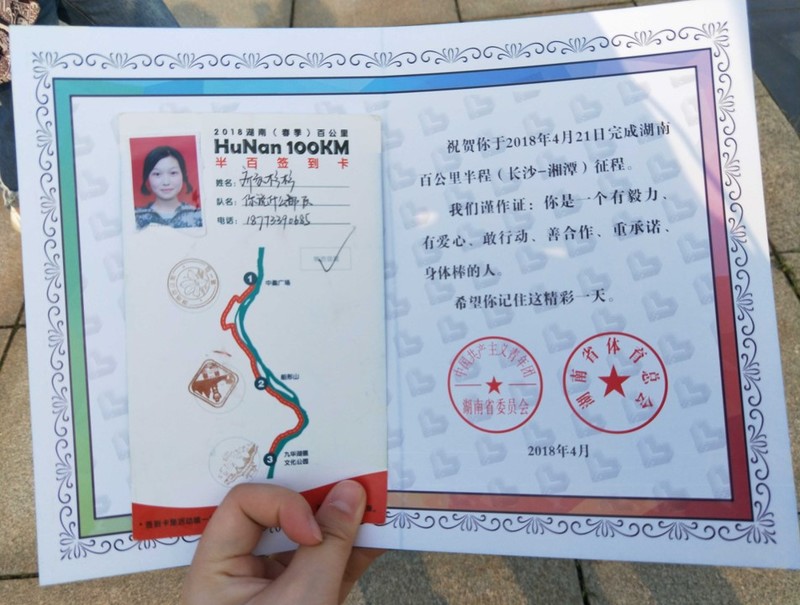 2018湖南（春季）百公里
HuNan 100KM
半百签到卡
姓名：
队名：你说什么都队
电话：18773390685
1 中心广场
2 昭山
3 九华湖德
文化公园
祝贺你于2018年4月21日完成湖南
百公里半程（长沙-湘潭）征程。
我们谨作证：你是一个有毅力、
有爱心、敢行动、善合作、重承诺、
身体棒的人。
希望你记住这精彩一天。
中国共产主义青年团
湖南省委员会
湖南省体育总会
2018年4月